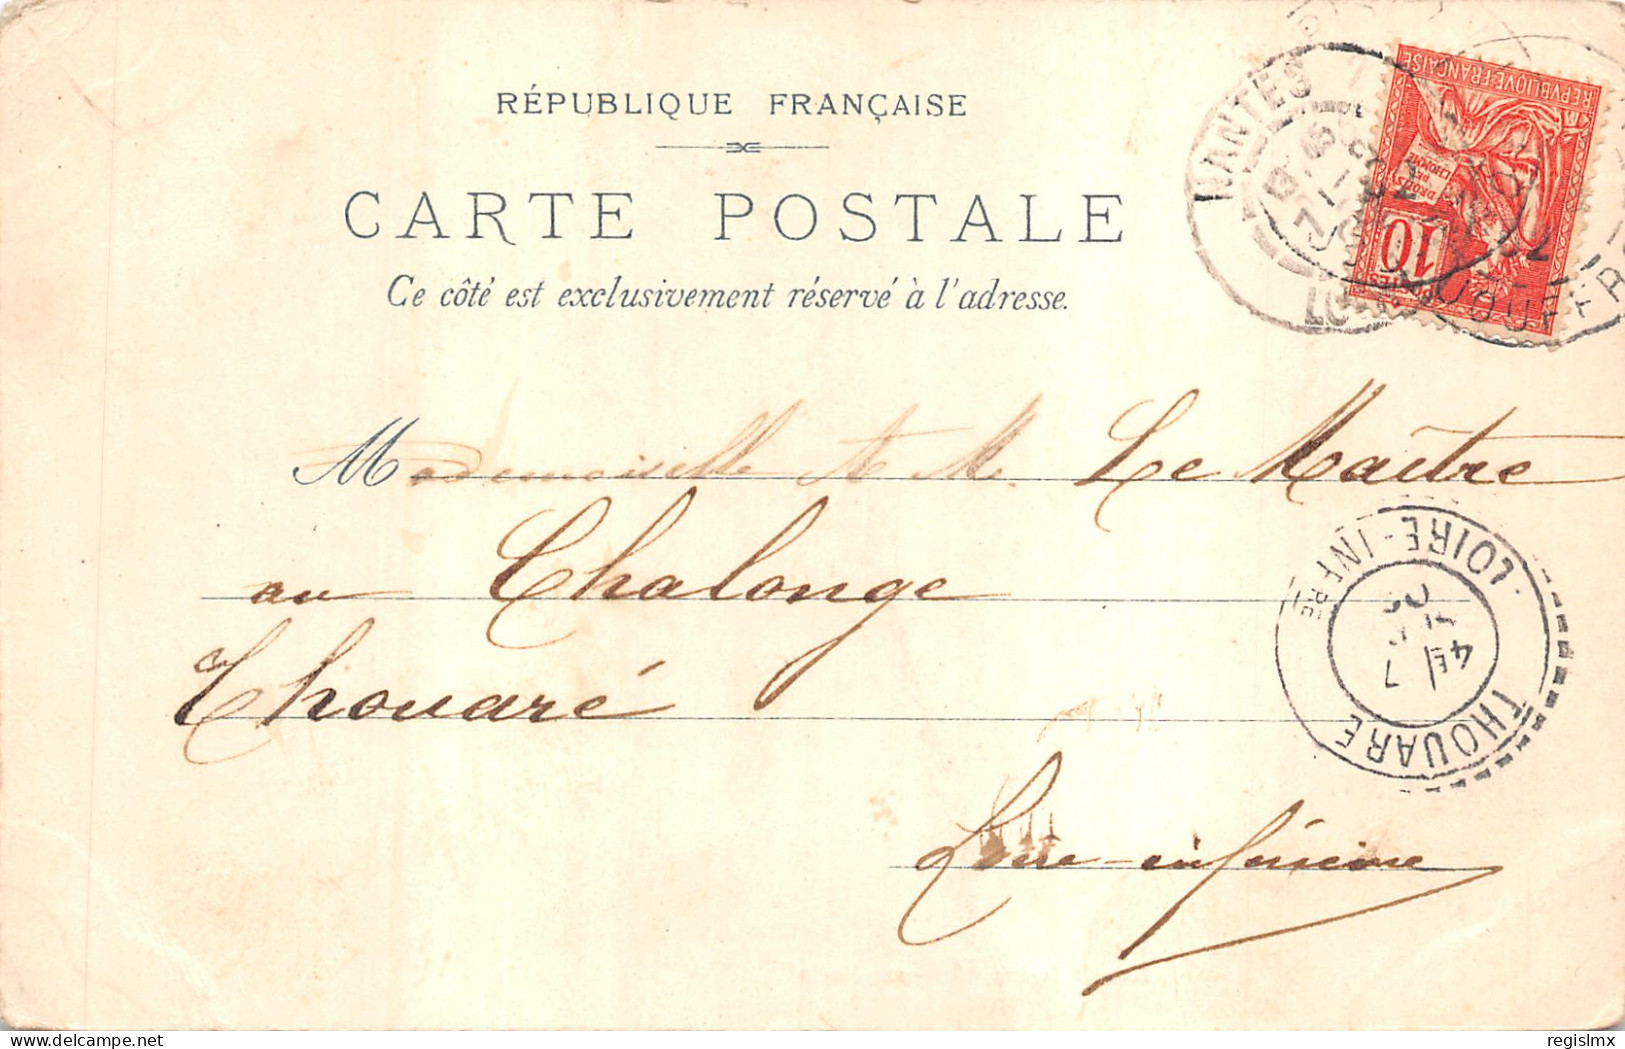 RÉPUBLIQUE FRANÇAISE
CARTE POSTALE
Ce côté est exclusivement réservé à l'adresse.
Mademoiselle A M. Le Maître
au Chalonge
Thouaré
Loire-inférieure
REPVBLIQVE FRANÇAISE
DROITS DE L'HOMME
10
POSTES
NANTES
02
THOUARE
LOIRE-INFRE
4E
7
regislmx